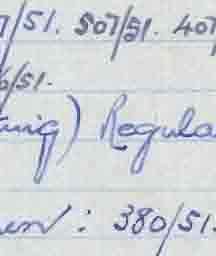 7/51. 507/51. 407
6/51.
ing) Regula
: 380/51.